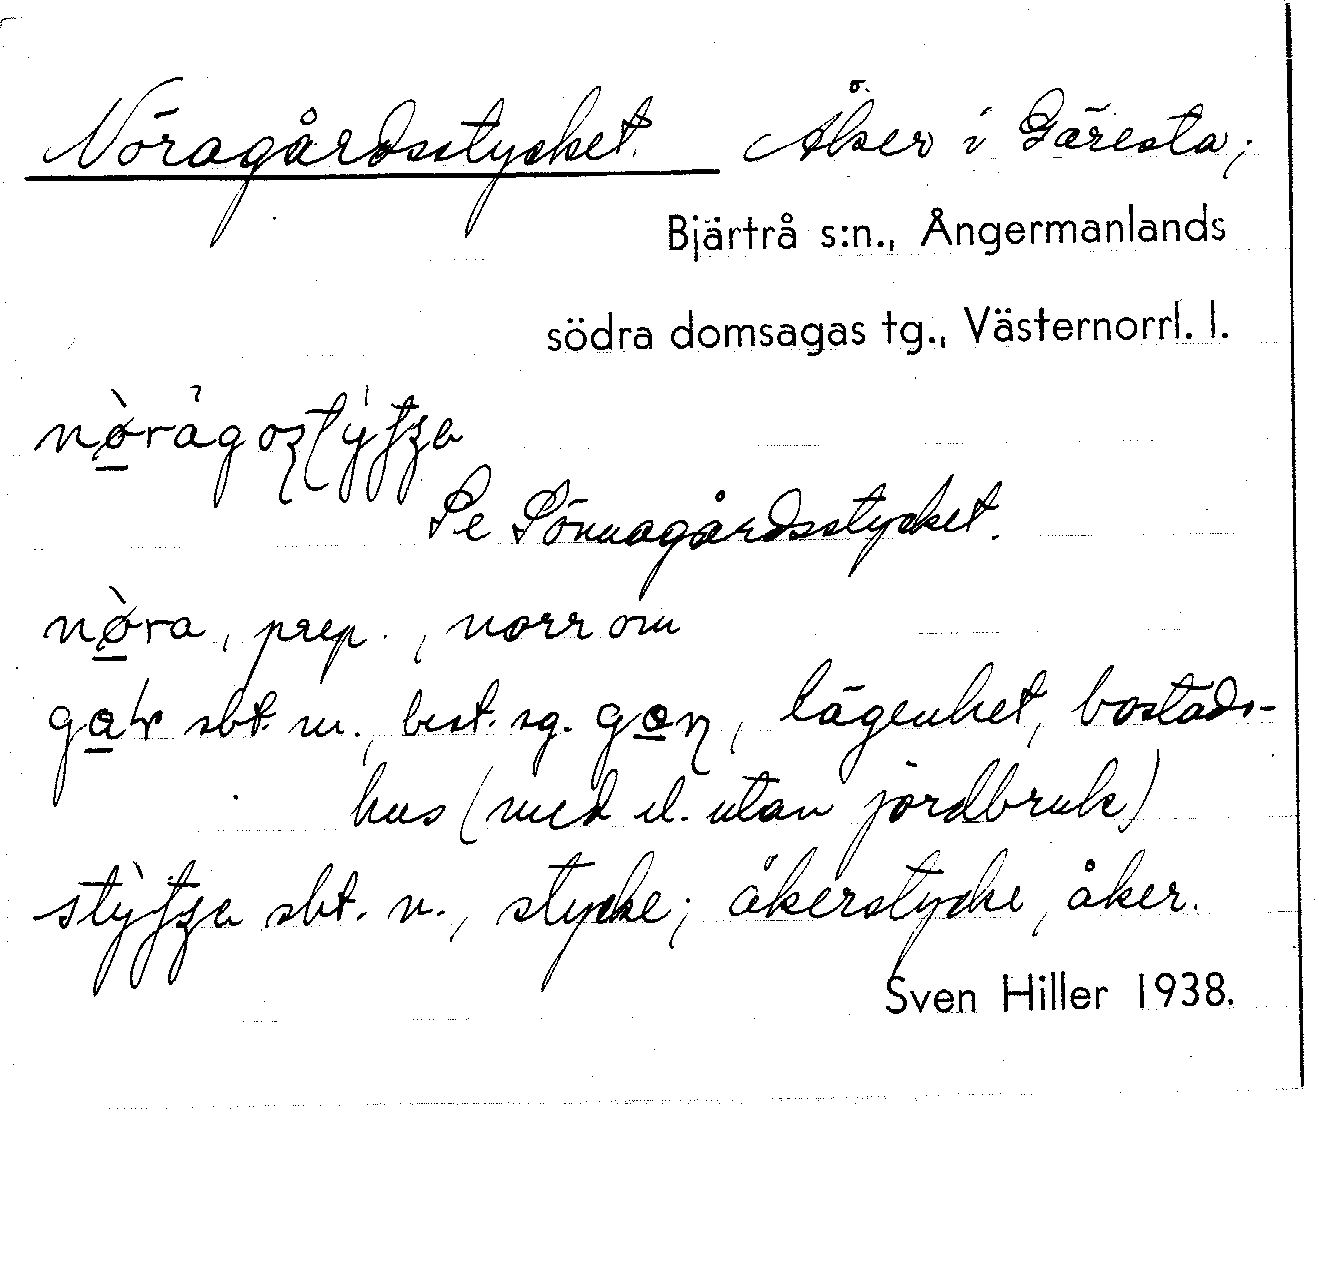 Nöragårdsstycket. Åker i Gäresta;
Bjärtrå s:n., Ångermanlands
södra domsagas tg., Västernorrl. l.
Se Sönnagårdsstycket.
nø̀ra, prep., norr om
sbt. m., best. sg. lägenhet, bostads-
hus (med el. utan jordbruk)
sbt. n., stycke; åkerstycke, åker.
Sven Hiller 1938.